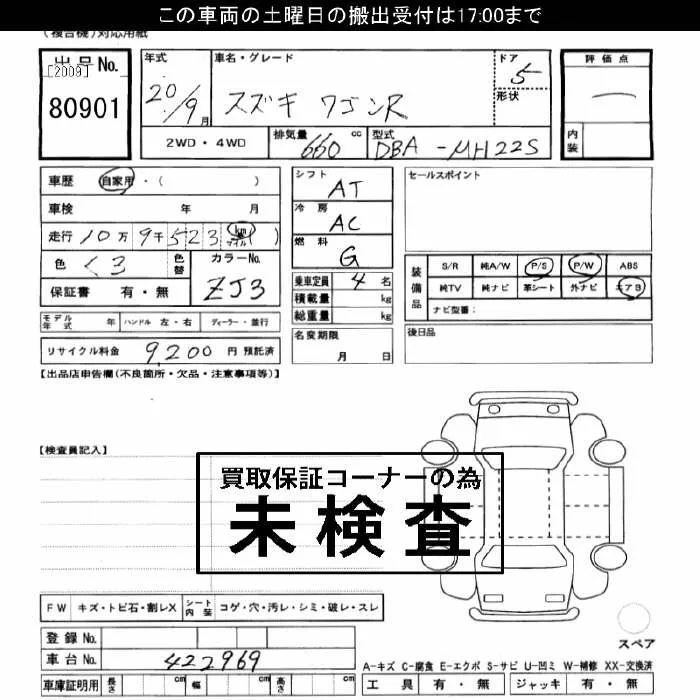 この車両の土曜日の搬出受付は17:00まで
(複合機)対応用紙
出品No.
[2009]
80901
年式
20/9月
車名・グレード
スズキ ワゴンR
ドア
5
形状
評価点
内装
2WD・4WD
排気量 660 cc
型式 DBA-MH22S
車歴 自家用・( )
車検 年 月
走行 10万9千523 km マイル ( )
色 くろ
色替
カラーNo.
ZJ3
保証書 有・無
シフト
AT
冷房
AC
燃料
G
乗車定員 4 名
積載量 kg
総重量 kg
セールスポイント
装備品
S/R 純A/W P/S P/W ABS
純TV 純ナビ 革シート 外ナビ エアB
ナビ型番:
モデル年式 年 ハンドル 左・右 ディーラー・並行
名変期限
月 日
後日品
リサイクル料金 9,200 円 預託済
【出品店申告欄(不良箇所・欠品・注意事項等)】
【検査員記入】
買取保証コーナーの為
未検査
FW キズ・トビ石・割レX シート内装 コゲ・穴・汚レ・シミ・破レ・スレ
登録No.
車台No. 422969
スペア
A-キズ C-腐食 E-エクボ S-サビ U-凹ミ W-補修 XX-交換済
車庫証明用 長さ cm 幅 cm 高さ cm
工具 有・無 ジャッキ 有・無